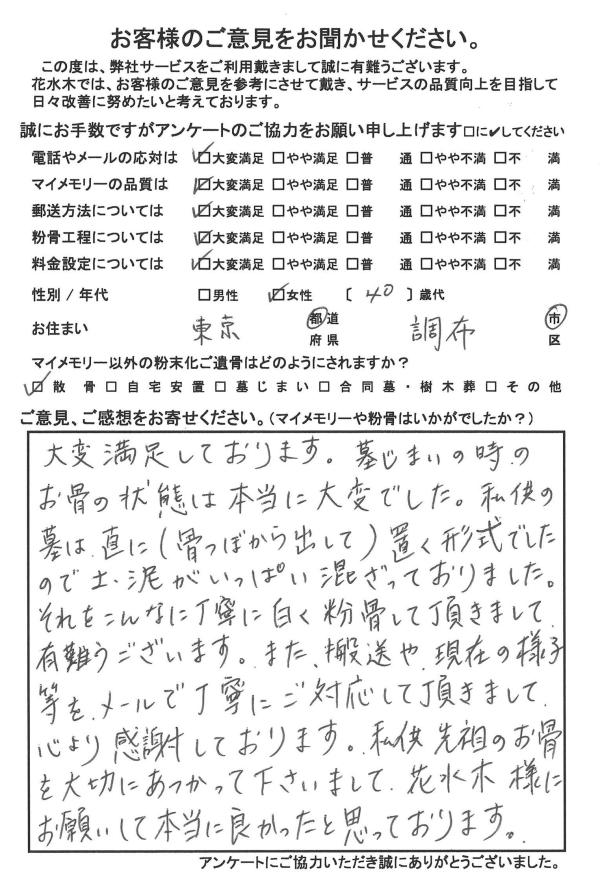 お客様のご意見をお聞かせください。
この度は、弊社サービスをご利用戴きまして誠に有難うございます。
花水木では、お客様のご意見を参考にさせて戴き、サービスの品質向上を目指して
日々改善に努めたいと考えております。
誠にお手数ですがアンケートのご協力をお願い申し上げます□に✔してください
電話やメールの応対は ☑大変満足 □やや満足 □普 通 □やや不満 □不 満
マイメモリーの品質は ☑大変満足 □やや満足 □普 通 □やや不満 □不 満
郵送方法については ☑大変満足 □やや満足 □普 通 □やや不満 □不 満
粉骨工程については ☑大変満足 □やや満足 □普 通 □やや不満 □不 満
料金設定については ☑大変満足 □やや満足 □普 通 □やや不満 □不 満
性別 / 年代 □男性 ☑女性 〔 40 〕歳代
お住まい 東京 都道府県 調布 市区
マイメモリー以外の粉末化ご遺骨はどのようにされますか？
☑散 骨 □自宅安置 □墓じまい □合同墓・樹木葬 □その他
ご意見、ご感想をお寄せください。(マイメモリーや粉骨はいかがでしたか？)
大変満足しております。墓じまいの時の
お骨の状態は本当に大変でした。私供の
墓は、直に(骨つぼから出して)置く形式でした
ので土・泥がいっぱい混ざっておりました。
それをこんなに丁寧に白く粉骨して頂きまして、
有難うございます。また、搬送や、現在の様子
等を、メールで丁寧にご対応して頂きまして、
心より感謝しております。私供先祖のお骨
を大切にあつかって下さいまして、花水木様に
お願いして本当に良かったと思っております。
アンケートにご協力いただき誠にありがとうございました。